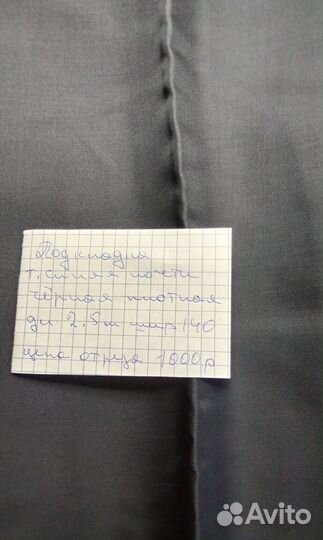 Подклад для
т. синяя почти
чёрная плотная
дл. 2.5м шир 140
цена отреза 1000р
Avito